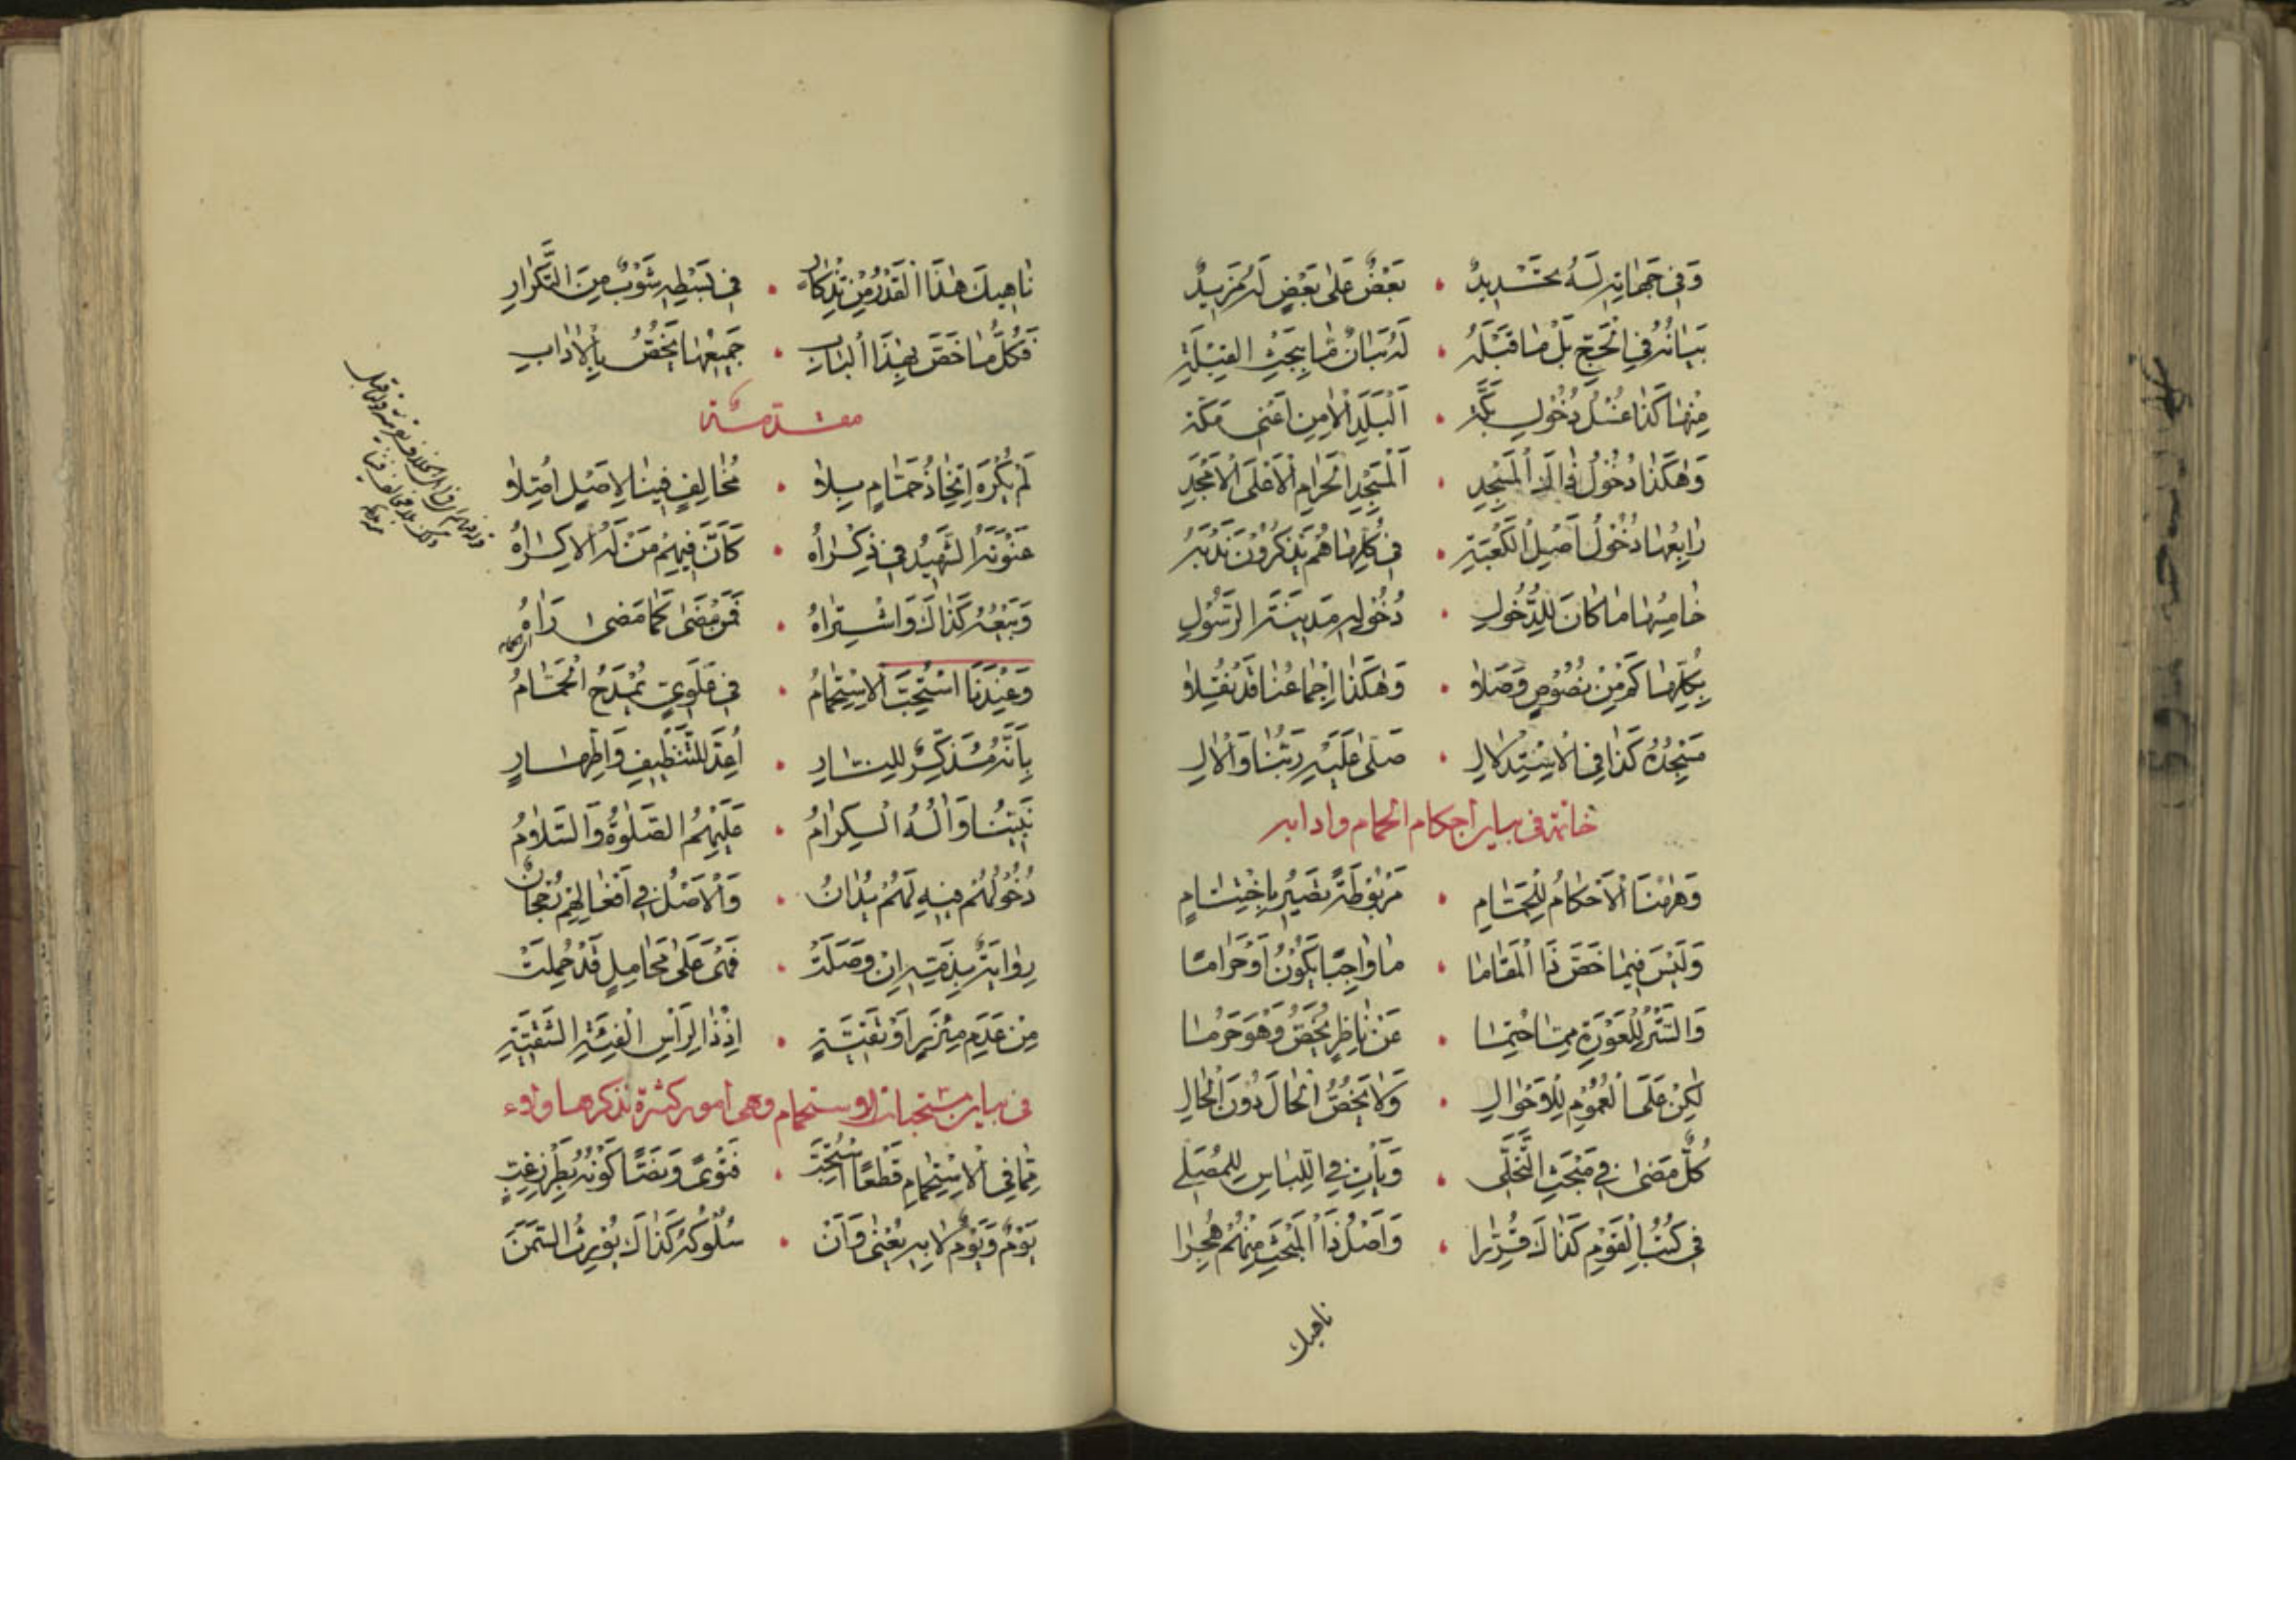 وَفِی جَهٰاتِهِ لَهُ تَحْدِیدٌ • بَعْضٌ عَلیٰ بَعْضٍ لَهُ مَزِیدٌ
بَیٰانُهُ فِی الْحَجِّ بَلْ مٰا قَبْلَهُ • لَهُ بَیٰانٌ مٰا بِبَحْثِ الْقِبْلَةِ
مِنْهٰا کَذٰا غُسْلُ دُخُولِ بَکَّةِ • اَلْبَلَدِ الْاَمِینِ اَعْنِی مَکَّةَ
وَهٰکَذٰا دُخُولُ ذٰاكَ الْمَسْجِدِ • اَلْمَسْجِدِ الْحَرٰامِ الْاَعْلَی الْاَمْجَدِ
رٰابِعُهٰا دُخُولُ اَصْلِ الْکَعْبَةِ • فِی کُلِّهٰا هُمْ یَذْکُرُونَ نَدْبَهُ
خٰامِسُهٰا مٰا کٰانَ لِلدُّخُولِ • دُخُولِهِ مَدِینَةَ الرَّسُولِ
بِکُلِّهٰا کَمْ مِنْ نُصُوصٍ وَصَلاٰ • وَهٰکَذٰا اِجْمٰاعُنٰا قَدْ نُقِلاٰ
مَسْجِدُهُ کَذٰا فِی الْاِسْتِدْلاٰلِ • صَلّیٰ عَلَیْهِ رَبُّنٰا وَالْاٰلِ
خاتمة فی بیان احکام الحمام وادابه
وَهٰهُنَا الْاَحْکٰامُ لِلْحَمّٰامِ • مَرْبُوطَةً نُصَیِّرُ بِاخْتِتٰامٍ
وَلَیْسَ فِیمٰا خَصَّ ذَا الْمَقٰامٰا • مٰا وٰاجِبًا یَکُونُ اَوْ حَرٰامًا
وَالسَّتْرُ لِلْعَوْرَةِ مِمّٰا حُتِمٰا • عَنْ نٰاظِرٍ یُخَصُّ وَهْوَ حَرُمٰا
لٰکِنْ عَلَی الْعُمُومِ لِلْاَحْوٰالِ • وَلاٰ یَخُصُّ الْحٰالَ دُونَ الْحٰالِ
کُلٌّ مَضیٰ فِی مَبْحَثِ التَّخَلِّی • وَیَأْتِ فِی اللِّبٰاسِ لِلْمُصَلِّی
فِی کُتُبِ الْقَوْمِ کَذٰاكَ قُرِّرٰا • وَاَصْلُ ذَا الْمَبْحَثِ مِنْهُمْ هُجِرٰا
ناهیك
نٰاهِیكَ هٰذَا الْقَدْرُ مِنْ تِذْکٰارِ • فِی بَسْطِهِ شَوْبٌ مِنَ التَّکْرٰارِ
فَکُلُّ مٰا خَصَّ بِهٰذَا الْبٰابِ • جَمِیعُهٰا یَخُصُّ بِالْاٰدٰابِ
مقدمة
لَمْ یُکْرَهِ اتِّخٰاذُ حَمّٰامٍ بِلاٰ • مُخٰالِفٍ فِینٰا لِاَصْلٍ اُصِّلاٰ
عَنْوَنَهُ الشَّهِیدُ فِی ذِکْرٰاهُ • کَاَنَّ فِیهِمْ مَنْ لَهُ الْاِکْرٰاهُ
وَبَیْعُهُ کَذٰاكَ وَاشْتِرٰاهُ • فَمَنْ مَضیٰ کَمٰا مَضیٰ رَاٰهُ
وَعِنْدَنَا اسْتُحِبَّ الْاِسْتِحْمٰامُ • فِی عَلَوِیٍّ یُمْدَحُ الْحَمّٰامُ
بِاَنَّهُ مُذَکِّرٌ لِلنّٰارِ • اُعِدَّ لِلتَّنْظِیفِ وَاطِّهٰارٍ
نَبِیُّنٰا وَاٰلُهُ الْکِرٰامُ • عَلَیْهِمُ الصَّلٰوةُ وَالسَّلاٰمُ
دُخُولُهُمْ فِیهِ لَهُمْ یُدٰانُ • وَالْاَصْلُ فِی اَفْعٰالِهِمْ رُجْحٰانٌ
رِوٰایَةٌ بِذَمِّهِ اِنْ وَصَلَتْ • فَهْیَ عَلیٰ مَحٰامِلٍ قَدْ حُمِلَتْ
مِنْ عَدَمِ مِئْزَرٍ اَوْ تَقِیَّةٍ • اِذْ ذٰا لِرَأْسِ الْفِئَةِ الشَّقِیَّةِ
فی بیان مستحبات الاستحمام وهی امور کثیرة نذکرها ولاء
مِمّٰا فِی الْاِسْتِحْمٰامِ قَطْعًا اسْتُحِبَّ • فَتْویً وَنَصًّا کَوْنُهُ بِظِرْزِ غِبٍّ
یَوْمٌ وَیَوْمٌ لاٰ بِهِ یُعْنیٰ وَاَنْ • سُلُوکُهُ کَذٰاكَ یُورِثُ السِّمَنَ